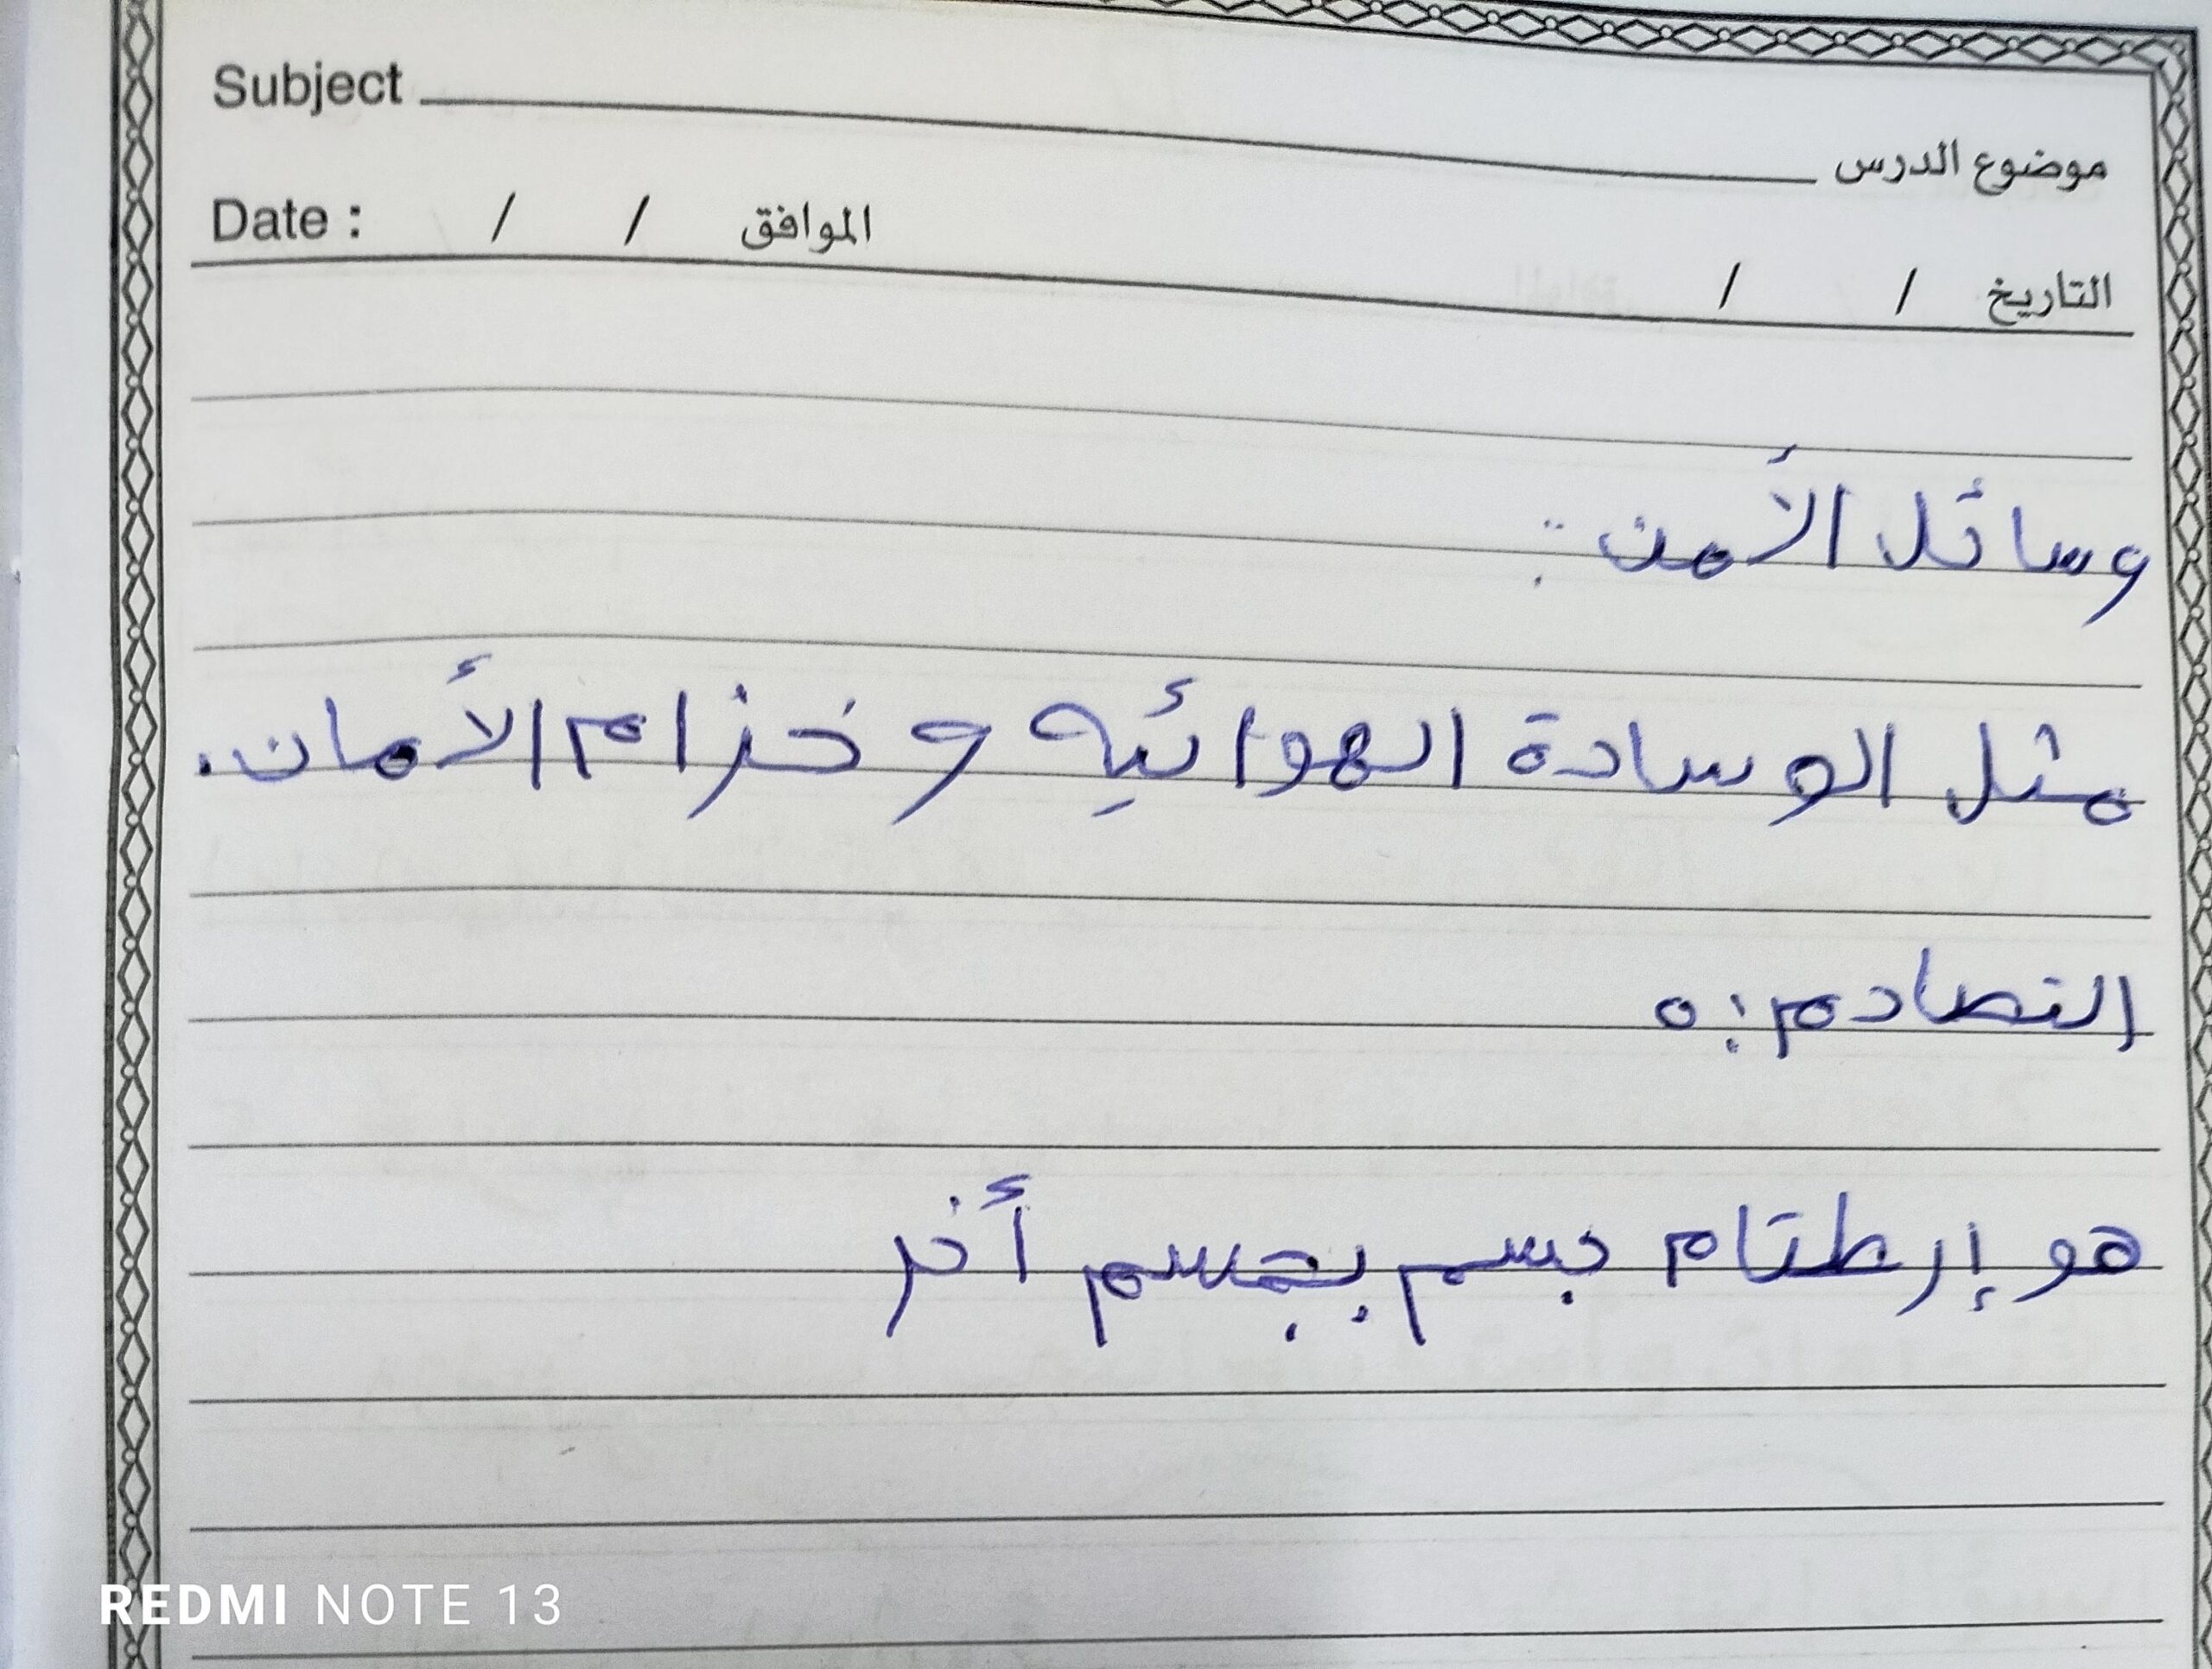 Subject موضوع الدرس
Date : / / الموافق / / التاريخ
وسائل الأمن :
مثل الوسادة الهوائيه و خزام الأمان.
التصادم :ه
هو إرطتام جسم بجسم أخر
REDMI NOTE 13